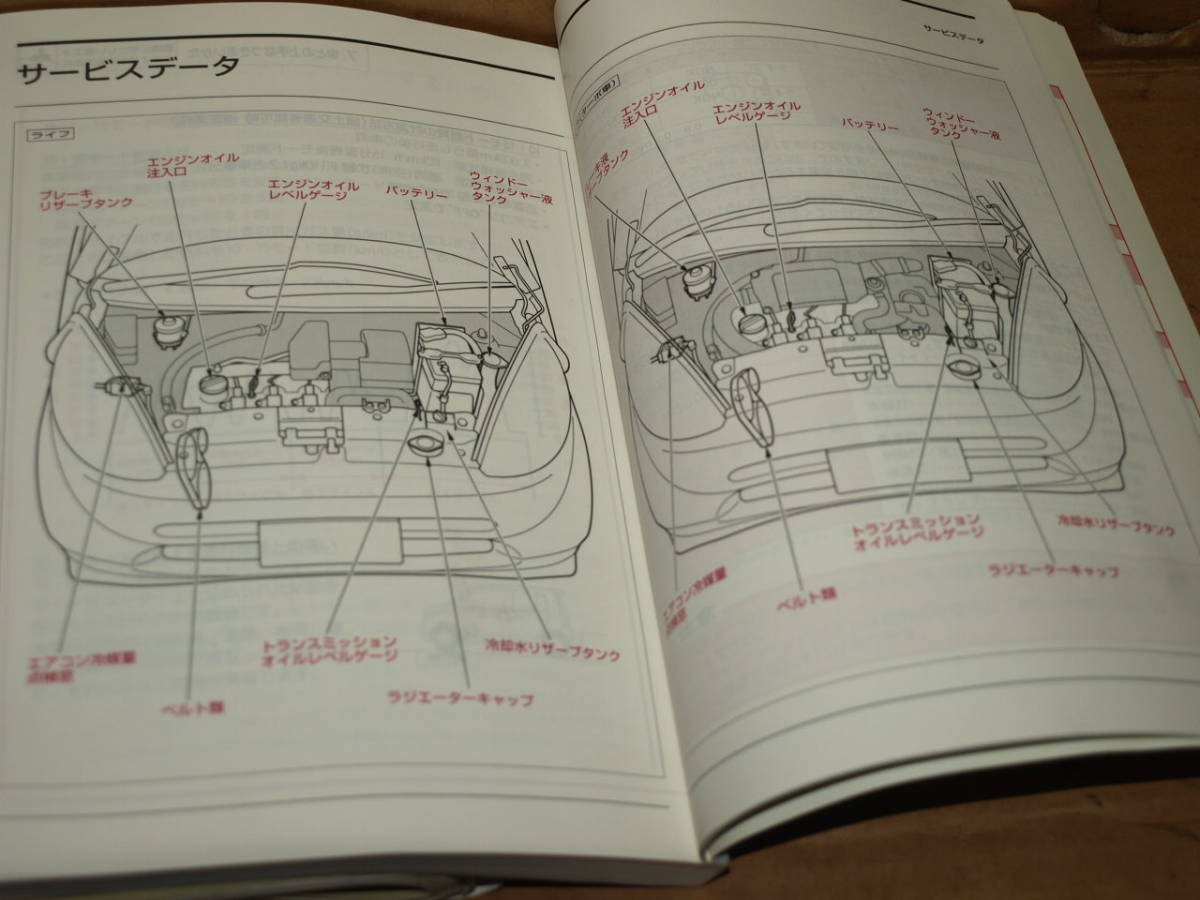 サービスデータ
ライフ
エンジンオイル
注入口
ブレーキ
リザーブタンク
エンジンオイル
レベルゲージ
バッテリー
ウィンドー
ウォッシャー液
タンク
エアコン冷媒量
点検窓
ベルト類
トランスミッション
オイルレベルゲージ
ラジエーターキャップ
冷却水リザーブタンク
サービスデータ
ターボ車)
エンジンオイル
注入口
エンジンオイル
レベルゲージ
バッテリー
ウィンドー
ウォッシャー液
タンク
キ液
ザーブタンク
エアコン冷媒量
点検窓
ベルト類
トランスミッション
オイルレベルゲージ
ラジエーターキャップ
冷却水リザーブタンク